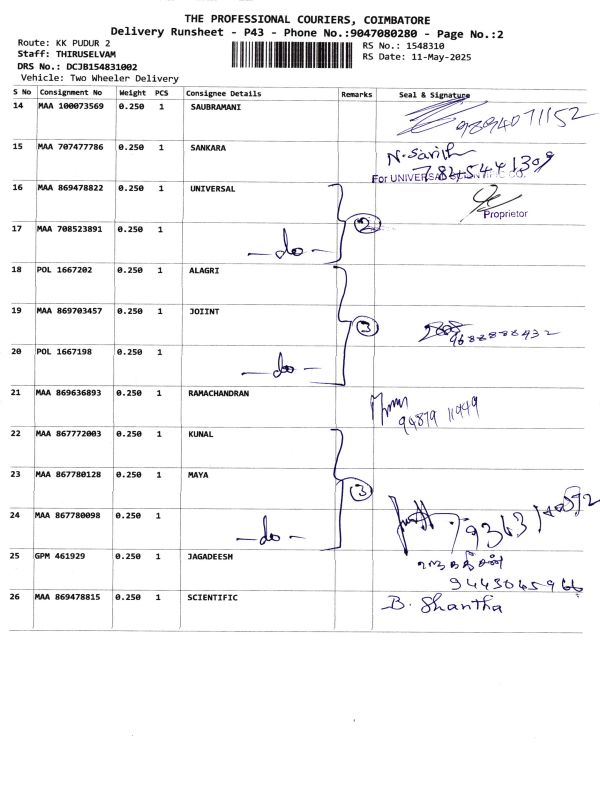 THE PROFESSIONAL COURIERS, COIMBATORE
Delivery Runsheet - P43 - Phone No.:9047080280 - Page No.:2
Route: KK PUDUR 2
Staff: THIRUSELVAM
DRS No.: DCJB154831002
Vehicle: Two Wheeler Delivery
RS No.: 1548310
RS Date: 11-May-2025
S No Consignment No Weight PCS Consignee Details Remarks Seal & Signature
14 MAA 100073569 0.250 1 SAUBRAMANI 9894071152
15 MAA 707477786 0.250 1 SANKARA N. Sarith
7845441309
For UNIVERSAL SCIENTIFIC CO.
16 MAA 869478822 0.250 1 UNIVERSAL
Proprietor
17 MAA 708523891 0.250 1 -do- 2
18 POL 1667202 0.250 1 ALAGRI
19 MAA 869703457 0.250 1 JOIINT 3 9688888432
20 POL 1667198 0.250 1 -do-
21 MAA 869636893 0.250 1 RAMACHANDRAN
94879 11949
22 MAA 867772003 0.250 1 KUNAL
23 MAA 867780128 0.250 1 MAYA 3
24 MAA 867780098 0.250 1 -do-
25 GPM 461929 0.250 1 JAGADEESH ஜெகதீசன்
9443045966
26 MAA 869478815 0.250 1 SCIENTIFIC B. Shantha